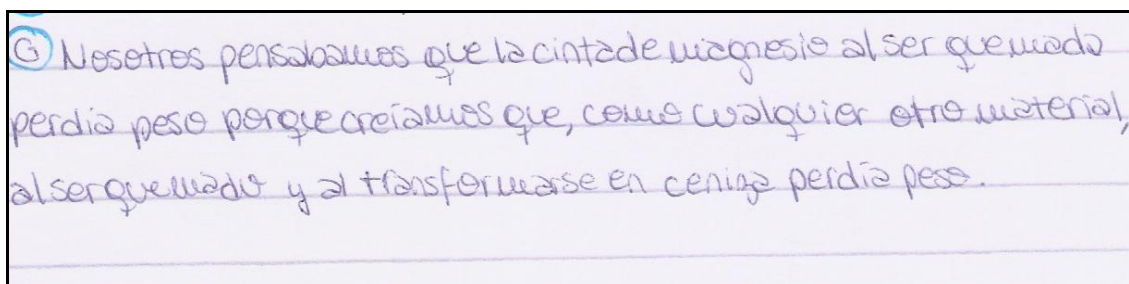 G Nosotros pensabamos que la cinta de magnesio al ser quemado
perdia peso porque creíamos que, como cualquier otro material,
al ser quemado y al transformarse en ceniza perdía peso.